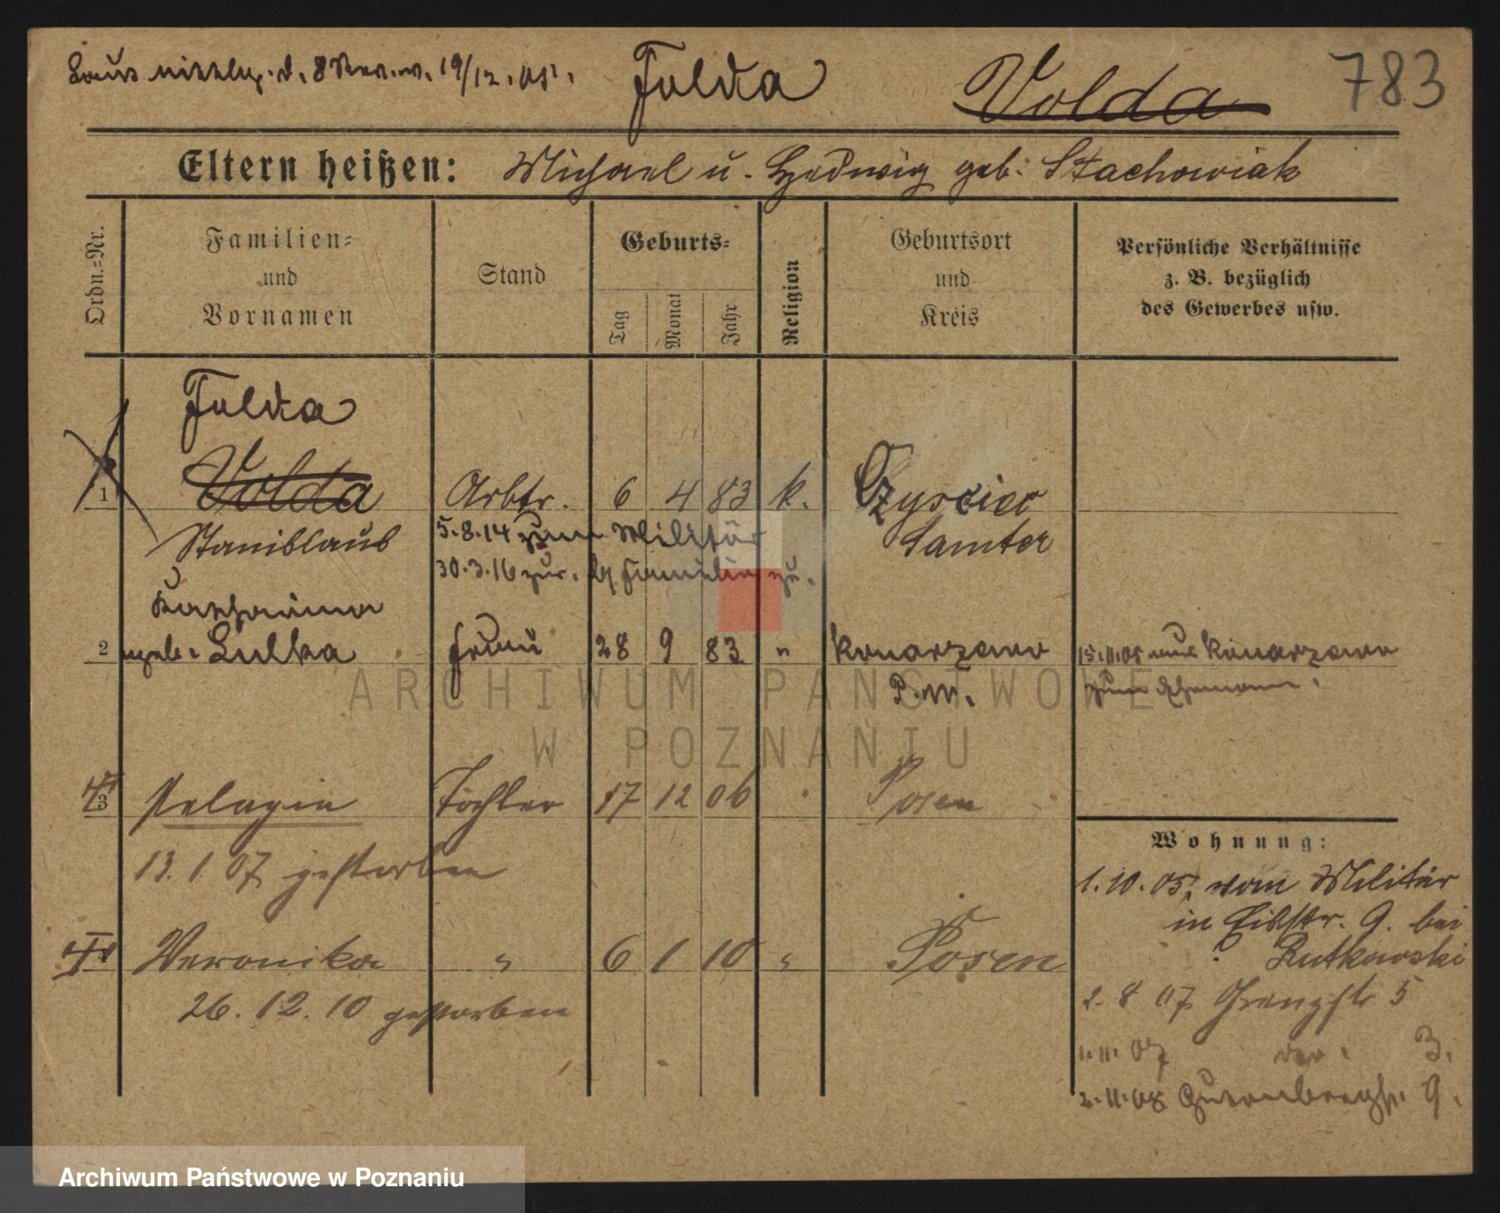 Laut Mittlg. d. 8 Rev. v. 19/12.05.
Folda
Volda
783
Eltern heißen: Michael u. Hedwig geb. Stachowiak
Ordn.-Nr.
Familien-
und
Vornamen
Stand
Geburts-
Tag
Monat
Jahr
Religion
Geburtsort
und
Kreis
Persönliche Verhältnisse
z. B. bezüglich
des Gewerbes usw.
Folda
1 Volda Arbtr. 6 4 83 k.
Stanislaus
Samter
5.8.14 zum Militär
30.3.16 zur. Familie
Katharina
2 geb. Frau 28 9 83 " Konarzewo
P.W.
15.11.05 aus Konarzewo
zum Ehemann.
3 Pelagia Tochter 17 12 06 Posen
13. 1. 07 gestorben
Veronika " 6 1 10 " Posen
26. 12. 10 gestorben
Wohnung:
1.10.05. vom Militär
in 9. bei
Rutkowski
2.8 07 Grenzstr 5
1.11.07 3.
2.11.08 9.
ARCHIWUM PAŃSTWOWE
W POZNANIU
Archiwum Państwowe w Poznaniu